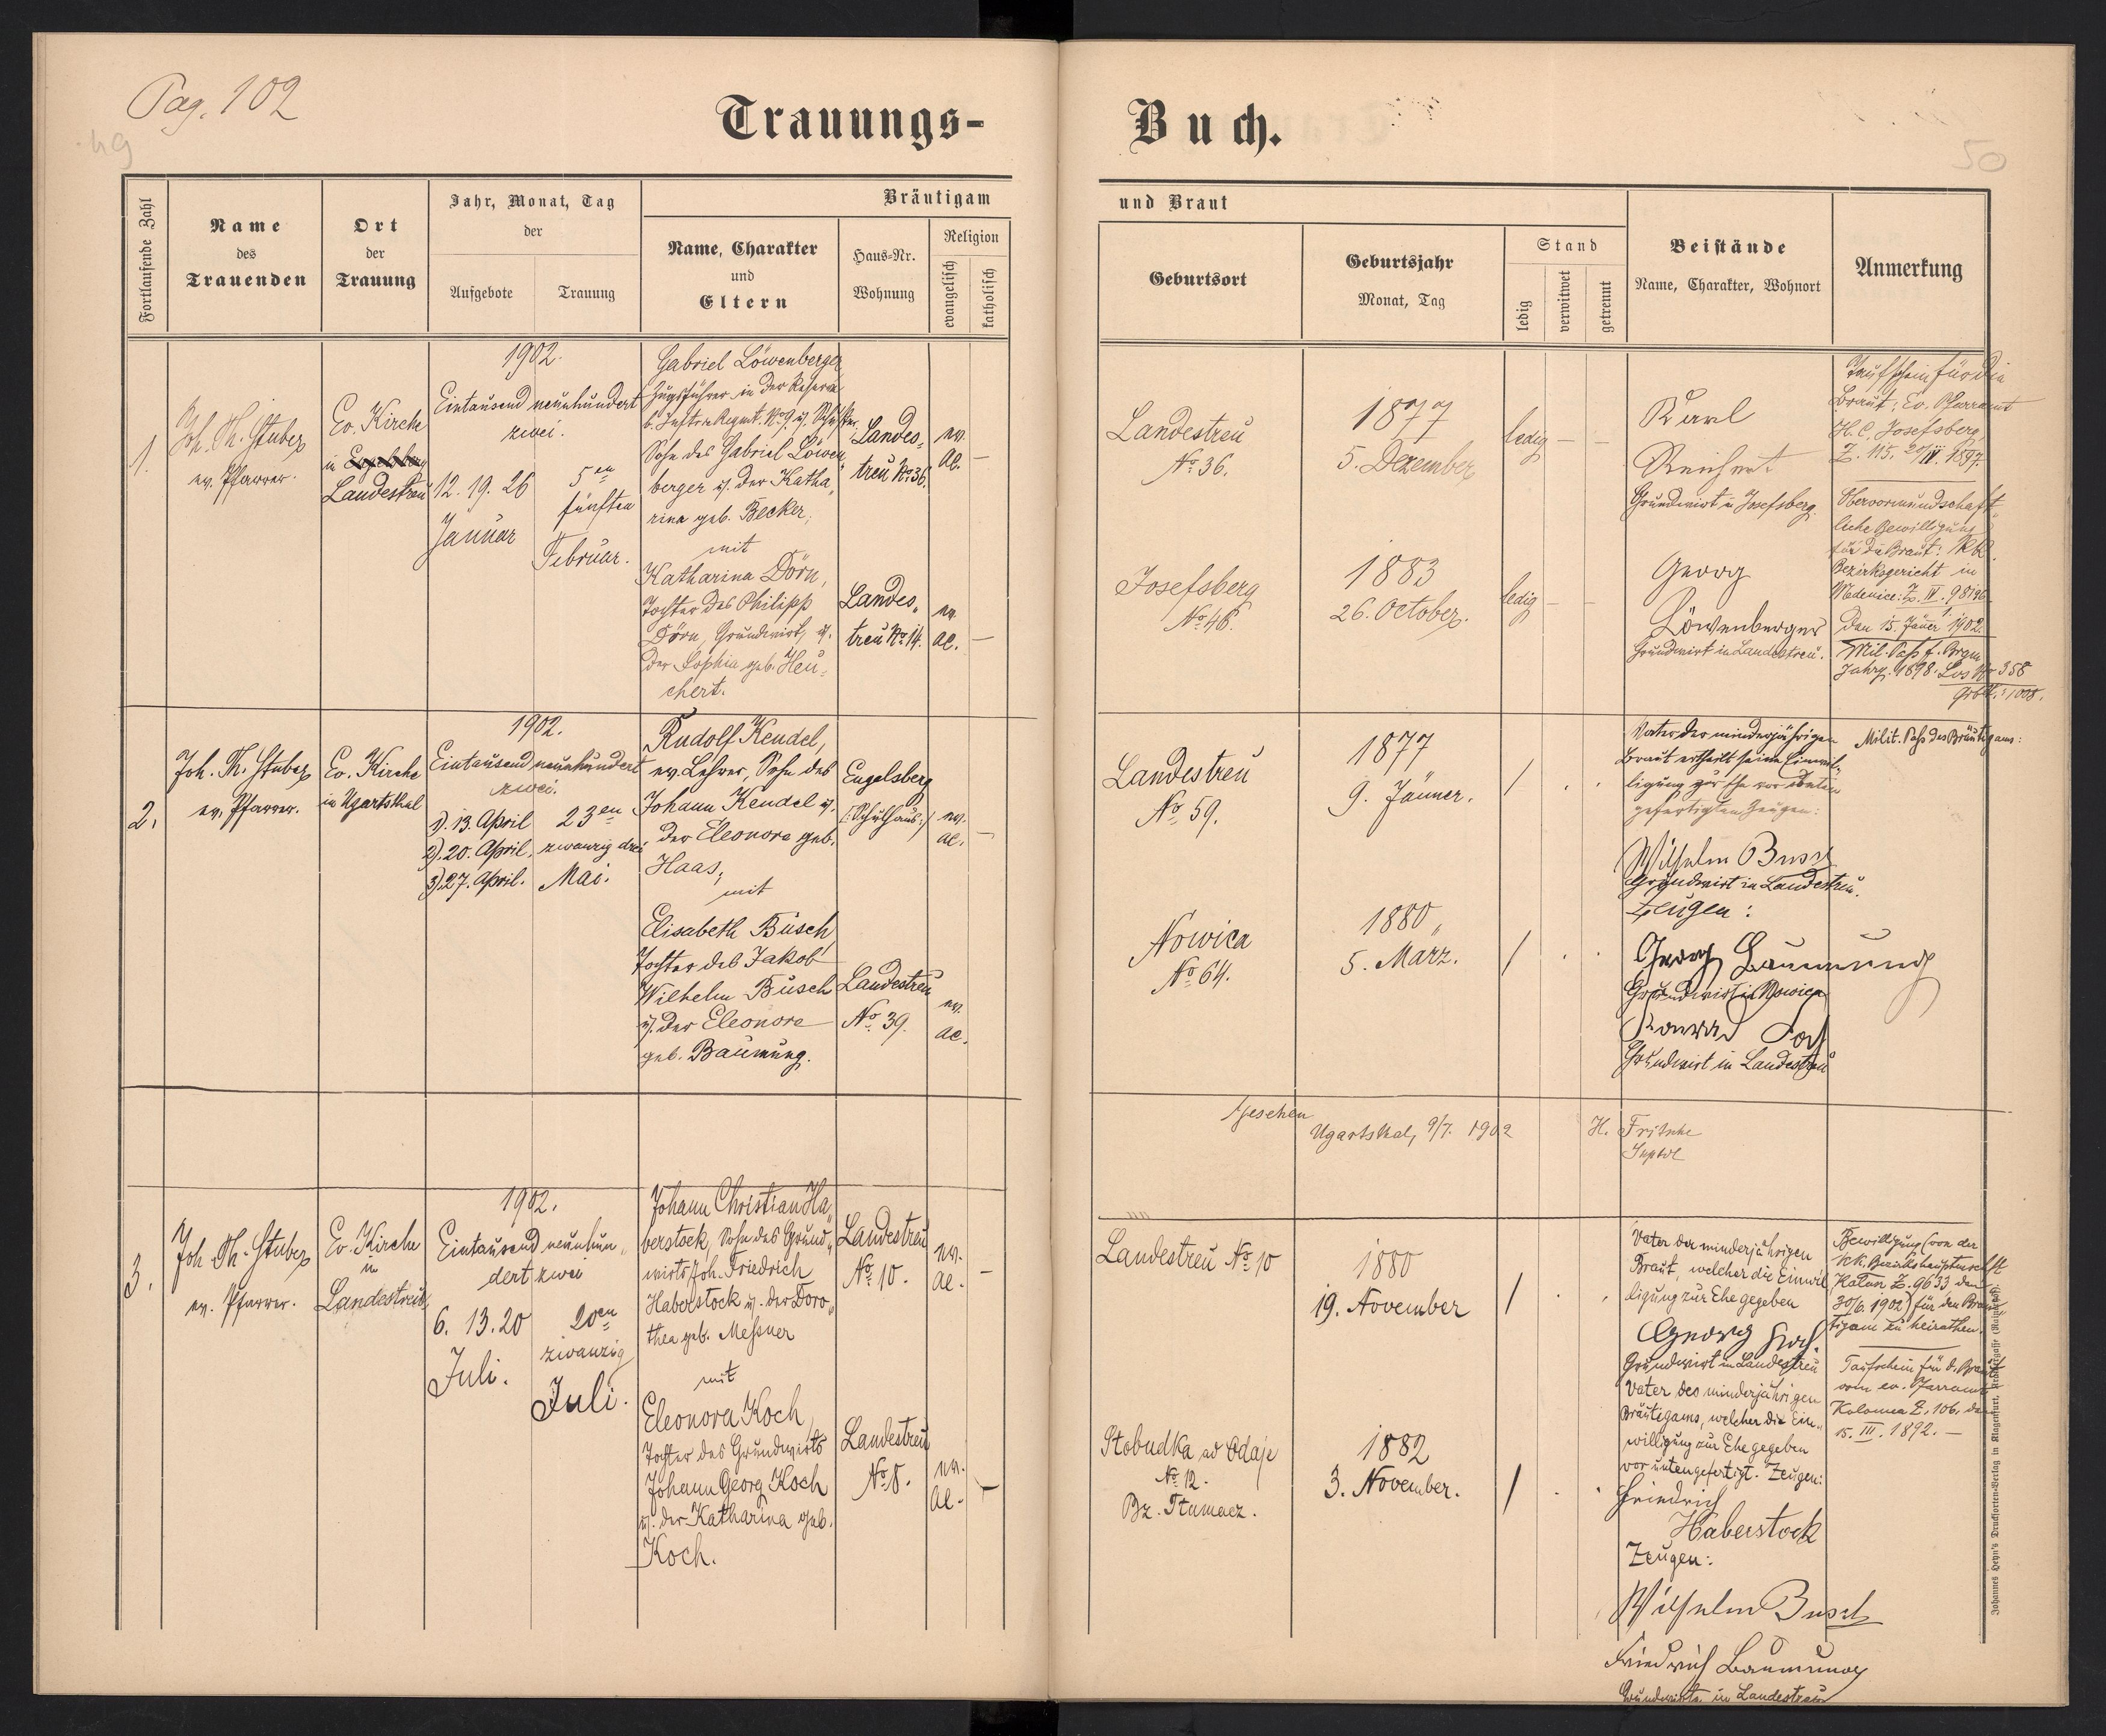 Pag. 102
49
50
Trauungs-
Buch.
Fortlaufende Zahl
Name
des
Trauenden
Ort
der
Trauung
Jahr, Monat, Tag
der
Aufgebote
Trauung
Bräutigam
Name, Charakter
und
Eltern
Haus-Nr.
Wohnung
Religion
evangelisch
katholisch
und Braut
Geburtsort
Geburtsjahr
Monat, Tag
Stand
ledig
verwitwet
getrennt
Beistände
Name, Charakter, Wohnort
Anmerkung
1.
Joh. Th. Stuber
ev. Pfarrer.
Ev. Kirche
in
Landestreu
1902.
Eintausend neunhundert
zwei.
12. 19. 26
Januar
5en
fünften
Februar.
Gabriel Löwenberger
Zugsführer in der Reserve
Sohn des Gabriel Löwen
berger u. der Katha
rina geb. Becker,
mit
Katharina Dörn,
Tochter des Philipp
Dörn, Grundwirt, u.
der Sophia geb. Heu-
chert.
Landes-
treu No 36.
ev.
AC.
Landes-
treu No 14.
ev.
AC.
Landestreu
No 36.
1877
5. Dezember
ledig
Josefsberg
No 46
1883
26. October.
ledig
Karl
Reichert
Grundwirt in Josefsberg.
Georg
Löwenberger
Grundwirt in Landestreu.
Taufschein für die
Braut: Ev. Pfarramt
H. C. Josefsberg,
Z. 115. 20/IV. 1897.
Obervormundschaft
liche Bewilligung
für die Braut: kk
Bezirksgericht in
Medenice:
den 15. Jäner 1902.
Mil. Paß f.
Jahrg. 1898. Los No 358
2.
Joh. Th. Stuber
ev. Pfarrer.
Ev. Kirche
in Ugartsthal
1902.
Eintausend neunhundert
zwei.
1). 13. April
2). 20. April.
3). 27. April.
23en
zwanzig drei
Mai.
Rudolf Kendel,
ev. Lehrer, Sohn des
Johann Kendel u.
der Eleonora geb.
Haas,
mit
Elisabeth Busch
Tochter des Jakob
Wilhelm Busch
u. der Eleonora
geb. Baumung.
Engelsberg
/:Schulhaus:/
ev.
AC.
Landestreu
No 39.
ev.
AC.
Landestreu
No 59.
1877
9. Jänner.
Nowica
No 64.
1880
5. März.
Vater der minderjährigen
Braut ertheilt seine Einwil-
ligung zur Ehe vor
gefertigten Zeugen:
Wilhelm Busch
Grundwirt in Landestreu.
Zeugen:
Georg Baumung
Grundwirt in Nowica
Konrad
Grundwirt in Landestreu
Milit. Paß des Bräutigams:
Gesehen
Ugartsthal, 9/7. 1902
H. Fritsche
Suptdt
3.
Joh. Th. Stuber
ev. Pfarrer.
Ev. Kirche
in
Landestreu,
1902.
Eintausend neunhun
dert zwei
6. 13. 20
Juli.
20en
zwanzig
Juli.
Johann Christian Ha
berstock, Sohn des Grund
wirts Joh. Friedrich
Haberstock u. der Doro
thea geb. Messner
mit
Eleonora Koch,
Tochter des Grundwirts
Johann Georg Koch
u. der Katharina geb.
Koch.
Landestreu
No 10.
ev.
AC.
Landestreu
No 8.
ev.
AC.
Landestreu No 10
1880
19. November
Slobudka ad Odaje
No 12.
Bz. Tlumacz.
1882
3. November.
Vater der minderjährigen
Braut, welcher die Einwil
ligung zur Ehe gegeben
Georg Koch.
Grundwirt in Landestreu
Vater des minderjährigen
Bräutigams, welcher die Ein
willigung zur Ehe gegeben
vor untengefertigt. Zeugen:
Friedrich
Haberstock
Zeugen:
Wilhelm Busch
Friedrich Baumung
Grundwirte in Landestreu
Bewilligung (von der
kk. Bezirkshauptmschft
Kalusz Z. 9633 den
30/6. 1902) für den Bräu
tigam zu heirathen.
Taufschein für d. Braut
vom ev. Pfarramt
Kolomea Z. 106. den
15. III. 1892.
Johannes Heyn's Drucksorten-Verlag in Klagenfurt